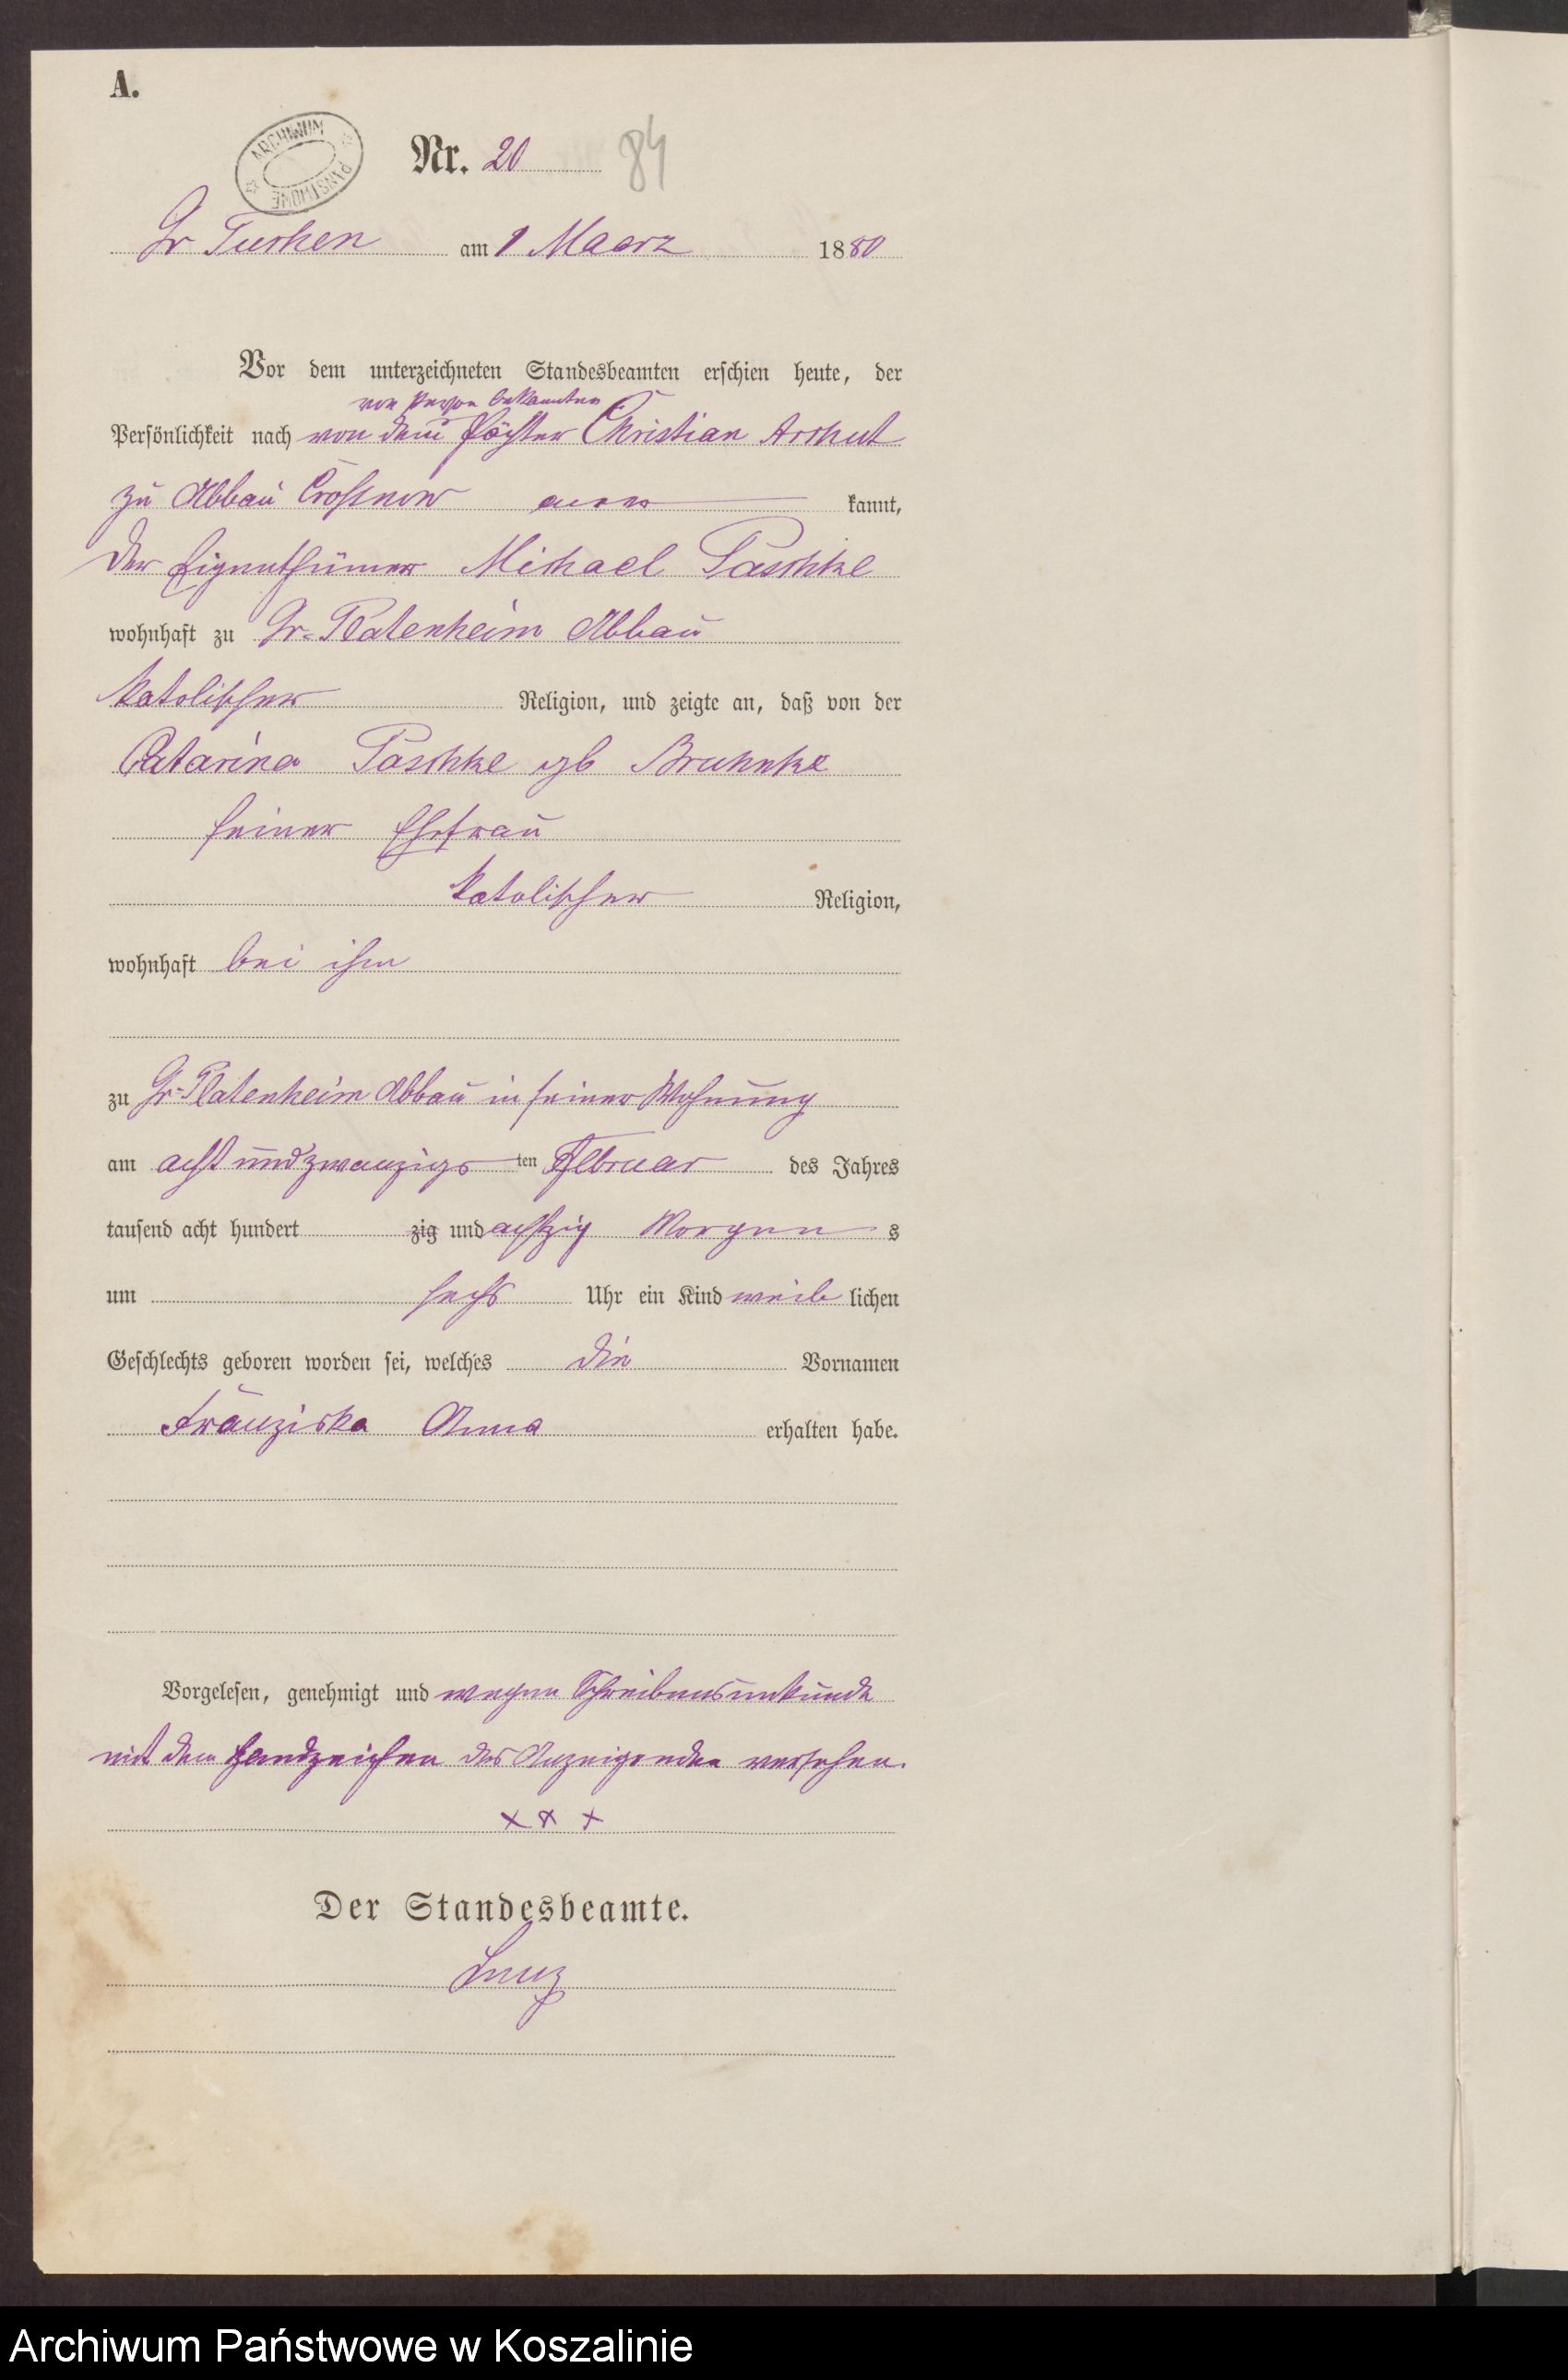 A.
ARCHIWUM PAŃSTWOWE
Nr. 20 84
Gr Tuchen am 1 Maerz 1880
Vor dem unterzeichneten Standesbeamten erschien heute, der
von Person bekannten
Persönlichkeit nach von dem Pächter Christian
zu Abbau aner kannt,
der Eigenthümer Michael Paschke
wohnhaft zu Gr. Platenheim Abbau
katolischer Religion, und zeigte an, daß von der
Catarina Paschke gb Bruhnke
seiner Ehefrau
katolischer Religion,
wohnhaft bei ihm
zu Gr. Platenheim Abbau in seiner Wohnung
am acht und zwanzigs ten Februar des Jahres
tausend acht hundert zig und achtzig Morgen s
um sechs Uhr ein Kind weib lichen
Geschlechts geboren worden sei, welches die Vornamen
Franziska Anna erhalten habe.
Vorgelesen, genehmigt und wegen Schreibensunkunde
mit dem Handzeichen des Anzeigenden versehen.
x x x
Der Standesbeamte.
Archiwum Państwowe w Koszalinie